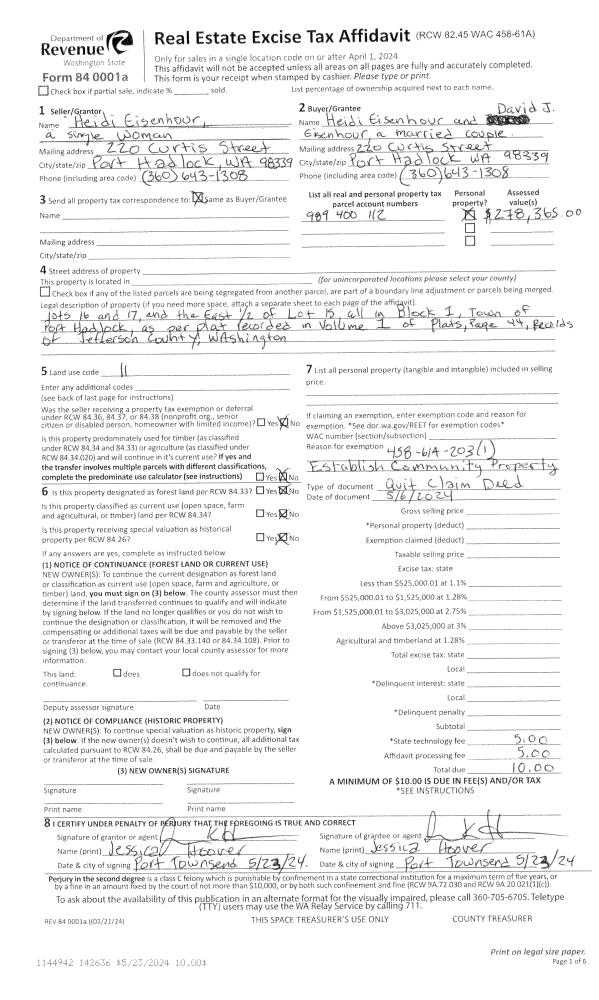 Department of
Revenue
Washington State
Form 84 0001a
Real Estate Excise Tax Affidavit (RCW 82.45 WAC 458-61A)
Only for sales in a single location code on or after April 1, 2024.
This affidavit will not be accepted unless all areas on all pages are fully and accurately completed.
This form is your receipt when stamped by cashier. Please type or print.
Check box if partial sale, indicate % sold.
List percentage of ownership acquired next to each name.
1 Seller/Grantor
Name Heidi Eisenhour,
a single woman
Mailing address 220 Curtis Street
City/state/zip Port Hadlock, WA 98339
Phone (including area code) (360)643-1308
2 Buyer/Grantee
David J.
Name Heidi Eisenhour and
Eisenhour, a married couple.
Mailing address 220 Curtis Street
City/state/zip Port Hadlock WA 98339
Phone (including area code) (360)643-1308
3 Send all property tax correspondence to: Same as Buyer/Grantee
Name
Mailing address
City/state/zip
List all real and personal property tax parcel account numbers
Personal property?
Assessed value(s)
989 400 112
$278,365.00
4 Street address of property
This property is located in (for unincorporated locations please select your county)
Check box if any of the listed parcels are being segregated from another parcel, are part of a boundary line adjustment or parcels being merged.
Legal description of property (if you need more space, attach a separate sheet to each page of the affidavit).
lots 16 and 17, and the East 1/2 of Lot 15, all in Block 1, Town of
Port Hadlock, as per plat recorded in Volume 1 of Plats, Page 44, Records
of Jefferson County, Washington
5 Land use code 11
Enter any additional codes
(see back of last page for instructions)
Was the seller receiving a property tax exemption or deferral
under RCW 84.36, 84.37, or 84.38 (nonprofit org., senior
citizen or disabled person, homeowner with limited income)? Yes No
Is this property predominately used for timber (as classified
under RCW 84.34 and 84.33) or agriculture (as classified under
RCW 84.34.020) and will continue in it's current use? If yes and
the transfer involves multiple parcels with different classifications,
complete the predominate use calculator (see instructions) Yes No
6 Is this property designated as forest land per RCW 84.33? Yes No
Is this property classified as current use (open space, farm
and agricultural, or timber) land per RCW 84.34? Yes No
Is this property receiving special valuation as historical
property per RCW 84.26? Yes No
If any answers are yes, complete as instructed below.
(1) NOTICE OF CONTINUANCE (FOREST LAND OR CURRENT USE)
NEW OWNER(S): To continue the current designation as forest land
or classification as current use (open space, farm and agriculture, or
timber) land, you must sign on (3) below. The county assessor must then
determine if the land transferred continues to qualify and will indicate
by signing below. If the land no longer qualifies or you do not wish to
continue the designation or classification, it will be removed and the
compensating or additional taxes will be due and payable by the seller
or transferor at the time of sale (RCW 84.33.140 or 84.34.108). Prior to
signing (3) below, you may contact your local county assessor for more
information.
This land: does does not qualify for
continuance.
Deputy assessor signature Date
(2) NOTICE OF COMPLIANCE (HISTORIC PROPERTY)
NEW OWNER(S): To continue special valuation as historic property, sign
(3) below. If the new owner(s) doesn't wish to continue, all additional tax
calculated pursuant to RCW 84.26, shall be due and payable by the seller
or transferor at the time of sale.
(3) NEW OWNER(S) SIGNATURE
Signature Signature
Print name Print name
7 List all personal property (tangible and intangible) included in selling
price.
If claiming an exemption, enter exemption code and reason for
exemption. *See dor.wa.gov/REET for exemption codes*
WAC number (section/subsection)
Reason for exemption 458-61A-203(1)
Establish Community Property
Type of document Quit Claim Deed
Date of document 5/6/2024
Gross selling price
*Personal property (deduct)
Exemption claimed (deduct)
Taxable selling price
Excise tax: state
Less than $525,000.01 at 1.1%
From $525,000.01 to $1,525,000 at 1.28%
From $1,525,000.01 to $3,025,000 at 2.75%
Above $3,025,000 at 3%
Agricultural and timberland at 1.28%
Total excise tax: state
Local
*Delinquent interest: state
Local
*Delinquent penalty
Subtotal
*State technology fee 5.00
Affidavit processing fee 5.00
Total due 10.00
A MINIMUM OF $10.00 IS DUE IN FEE(S) AND/OR TAX
*SEE INSTRUCTIONS
8 I CERTIFY UNDER PENALTY OF PERJURY THAT THE FOREGOING IS TRUE AND CORRECT
Signature of grantor or agent
Name (print) Jessica Hoover
Date & city of signing Port Townsend 5/23/24.
Signature of grantee or agent
Name (print) Jessica Hoover
Date & city of signing Port Townsend 5/23/24
Perjury in the second degree is a class C felony which is punishable by confinement in a state correctional institution for a maximum term of five years, or
by a fine in an amount fixed by the court of not more than $10,000, or by both such confinement and fine (RCW 9A.72.030 and RCW 9A.20.021(1)(c)).
To ask about the availability of this publication in an alternate format for the visually impaired, please call 360-705-6705. Teletype
(TTY) users may use the WA Relay Service by calling 711.
REV 84 0001a (02/21/24) THIS SPACE TREASURER'S USE ONLY COUNTY TREASURER
Print on legal size paper.
Page 1 of 6
1144942 142636 $5/23/2024 10.00*